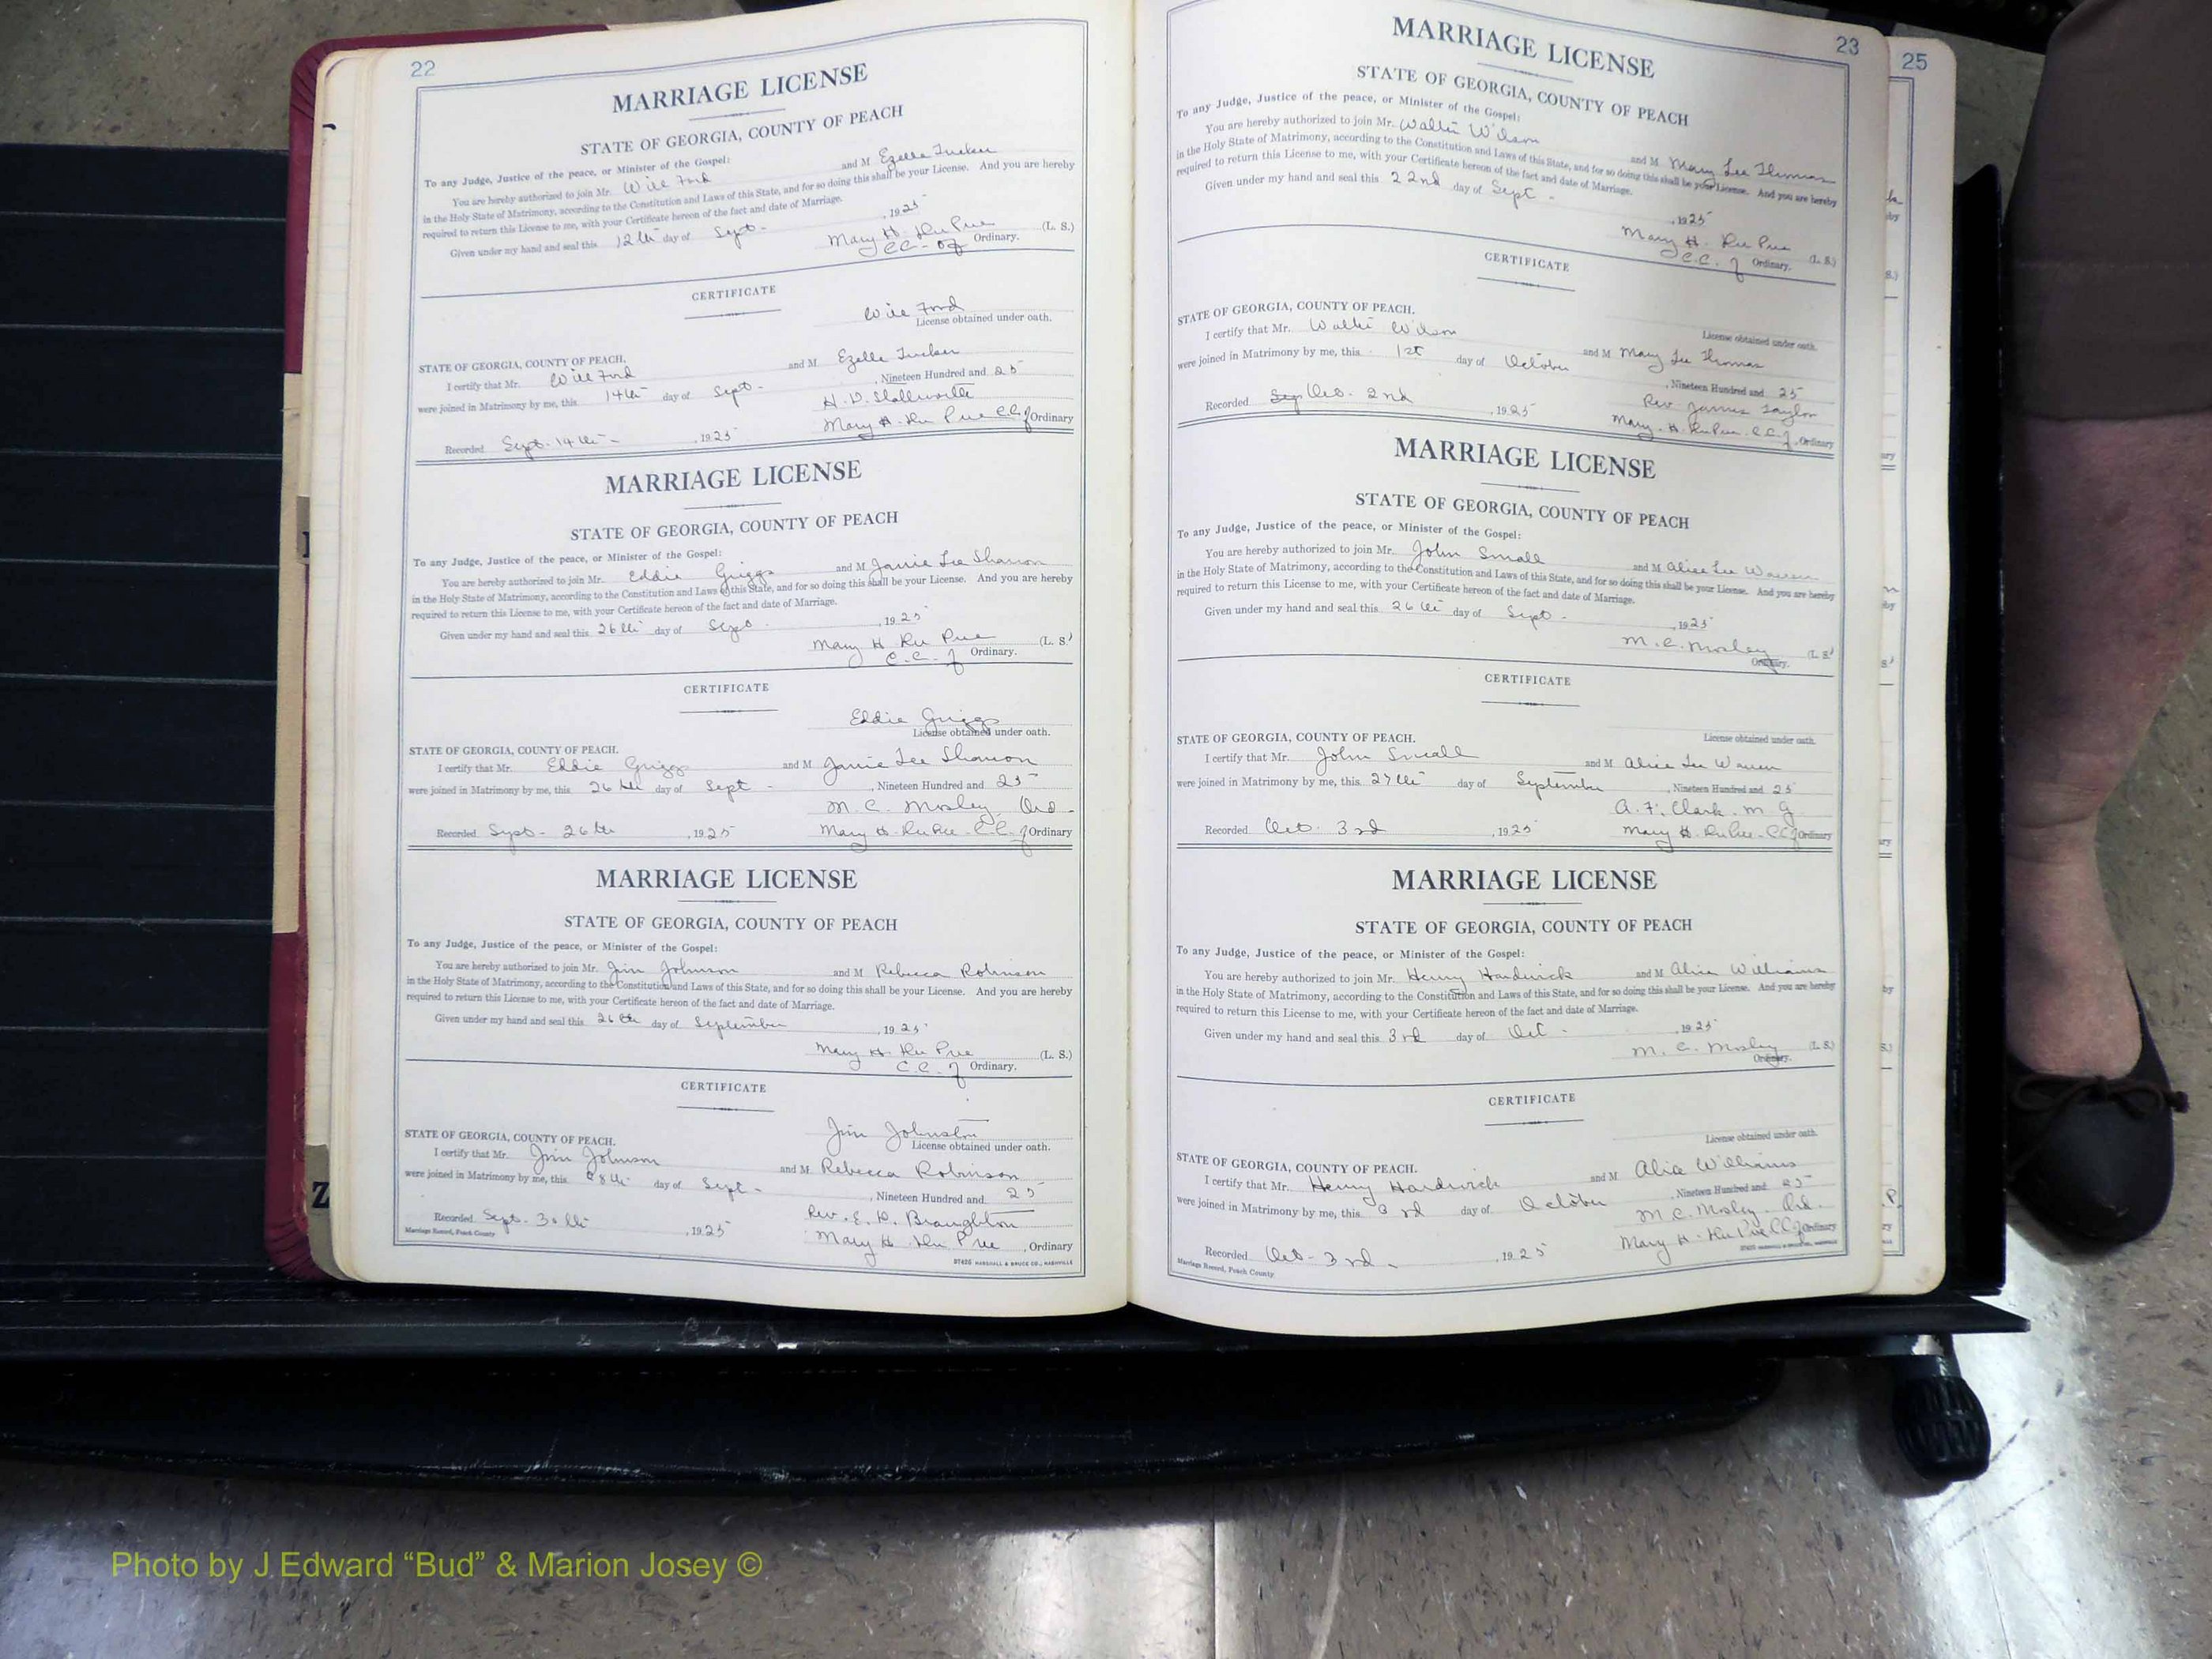 22
MARRIAGE LICENSE
STATE OF GEORGIA, COUNTY OF PEACH
To any Judge, Justice of the peace, or Minister of the Gospel:
You are hereby authorized to join Mr. Will Ford and M Ezelle Tucker
in the Holy State of Matrimony, according to the Constitution and Laws of this State, and for so doing this shall be your License. And you are hereby
required to return this License to me, with your Certificate hereon of the fact and date of Marriage.
Given under my hand and seal this 12th day of Sept - , 1925
Mary H. Ru Pue (L. S.)
C.C. Ordinary.
CERTIFICATE
Will Ford
License obtained under oath.
STATE OF GEORGIA, COUNTY OF PEACH.
I certify that Mr. Will Ford and M Ezelle Tucker
were joined in Matrimony by me, this 14th day of Sept - , Nineteen Hundred and 25
H. D.
Recorded Sept. 14th - , 1925 Mary H. Ru Pue C.C. Ordinary
MARRIAGE LICENSE
STATE OF GEORGIA, COUNTY OF PEACH
To any Judge, Justice of the peace, or Minister of the Gospel:
You are hereby authorized to join Mr. Eddie Griggs and M Janie Lee Sharron
in the Holy State of Matrimony, according to the Constitution and Laws of this State, and for so doing this shall be your License. And you are hereby
required to return this License to me, with your Certificate hereon of the fact and date of Marriage.
Given under my hand and seal this 26th day of Sept , 1925
Mary H Ru Pue (L. S.)
C.C. Ordinary.
CERTIFICATE
Eddie Griggs
License obtained under oath.
STATE OF GEORGIA, COUNTY OF PEACH.
I certify that Mr. Eddie Griggs and M Janie Lee Sharron
were joined in Matrimony by me, this 26th day of Sept - , Nineteen Hundred and 25
M. C. Mosley, Ord -
Recorded Sept - 26th , 1925 Mary H. Ru Pue - C.C. Ordinary
MARRIAGE LICENSE
STATE OF GEORGIA, COUNTY OF PEACH
To any Judge, Justice of the peace, or Minister of the Gospel:
You are hereby authorized to join Mr. Jim Johnson and M Rebecca Robinson
in the Holy State of Matrimony, according to the Constitution and Laws of this State, and for so doing this shall be your License. And you are hereby
required to return this License to me, with your Certificate hereon of the fact and date of Marriage.
Given under my hand and seal this 26th day of September , 1925
Mary H. Ru Pue (L. S.)
C.C. Ordinary.
CERTIFICATE
Jim Johnston
License obtained under oath.
STATE OF GEORGIA, COUNTY OF PEACH.
I certify that Mr. Jim Johnson and M Rebecca Robinson
were joined in Matrimony by me, this 28th day of Sept - , Nineteen Hundred and 25
Rev. E. D. Braughton
Recorded Sept. 30th , 1925 Mary H Ru Pue , Ordinary
Marriage Record, Peach County
MARSHALL & BRUCE CO., NASHVILLE
23
MARRIAGE LICENSE
STATE OF GEORGIA, COUNTY OF PEACH
To any Judge, Justice of the peace, or Minister of the Gospel:
You are hereby authorized to join Mr. Walter Wilson and M Mary Lee Thomas
in the Holy State of Matrimony, according to the Constitution and Laws of this State, and for so doing this shall be your License. And you are hereby
required to return this License to me, with your Certificate hereon of the fact and date of Marriage.
Given under my hand and seal this 22nd day of Sept - , 1925
Mary H. Ru Pue (L. S.)
C.C. Ordinary.
CERTIFICATE
License obtained under oath.
STATE OF GEORGIA, COUNTY OF PEACH.
I certify that Mr. Walter Wilson and M Mary Lee Thomas
were joined in Matrimony by me, this 1st day of October , Nineteen Hundred and 25
Rev James Taylor
Recorded Sep Oct. 2nd , 1925 Mary. H. Ru Pue. C.C. , Ordinary
MARRIAGE LICENSE
STATE OF GEORGIA, COUNTY OF PEACH
To any Judge, Justice of the peace, or Minister of the Gospel:
You are hereby authorized to join Mr. John Small and M Alice Lee Warren
in the Holy State of Matrimony, according to the Constitution and Laws of this State, and for so doing this shall be your License. And you are hereby
required to return this License to me, with your Certificate hereon of the fact and date of Marriage.
Given under my hand and seal this 26th day of Sept - , 1925
M. C. Mosley (L. S.)
Ordinary.
CERTIFICATE
License obtained under oath.
STATE OF GEORGIA, COUNTY OF PEACH.
I certify that Mr. John Small and M Alice Lee Warren
were joined in Matrimony by me, this 27th day of September , Nineteen Hundred and 25
A. F. Clark. M G
Recorded Oct. 3rd , 1925 Mary H. Ru Pue - C.C. Ordinary
MARRIAGE LICENSE
STATE OF GEORGIA, COUNTY OF PEACH
To any Judge, Justice of the peace, or Minister of the Gospel:
You are hereby authorized to join Mr. Henry Hardwick and M Alice Williams
in the Holy State of Matrimony, according to the Constitution and Laws of this State, and for so doing this shall be your License. And you are hereby
required to return this License to me, with your Certificate hereon of the fact and date of Marriage.
Given under my hand and seal this 3rd day of Oct - , 1925
M. C. Mosley (L. S.)
Ordinary.
CERTIFICATE
License obtained under oath.
STATE OF GEORGIA, COUNTY OF PEACH.
I certify that Mr. Henry Hardwick and M Alice Williams
were joined in Matrimony by me, this 3rd day of October , Nineteen Hundred and 25
M. C. Mosley. Ord.
Recorded Oct - 3rd - , 1925 Mary H. Ru Pue C.C. Ordinary
Marriage Record, Peach County
25
Z
Photo by J Edward “Bud” & Marion Josey ©